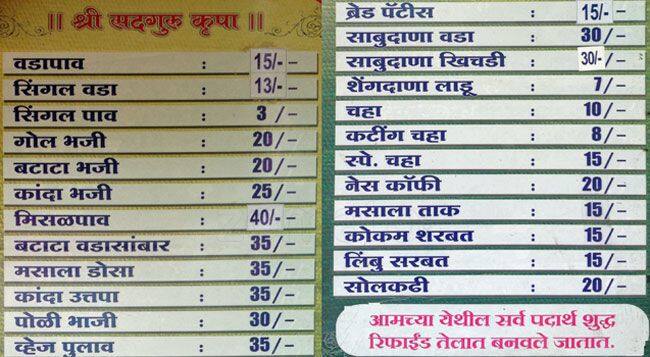 || श्री सदगुरु कृपा ||
वडापाव : 15/-
सिंगल वडा : 13/-
सिंगल पाव : 3/-
गोल भजी : 20/-
बटाटा भजी : 20/-
कांदा भजी : 25/-
मिसळपाव : 40/-
बटाटा वडासांबार : 35/-
मसाला डोसा : 35/-
कांदा उत्तपा : 35/-
पोळी भाजी : 30/-
व्हेज पुलाव : 35/-
ब्रेड पॅटीस : 15/-
साबुदाणा वडा : 30/-
साबुदाणा खिचडी : 30/-
शेंगदाणा लाडू : 7/-
चहा : 10/-
कटींग चहा : 8/-
स्पे. चहा : 15/-
नेस कॉफी : 20/-
मसाला ताक : 15/-
कोकम शरबत : 15/-
लिंबु सरबत : 15/-
सोलकढी : 20/-
आमच्या येथील सर्व पदार्थ शुद्ध
रिफाईंड तेलात बनवले जातात.